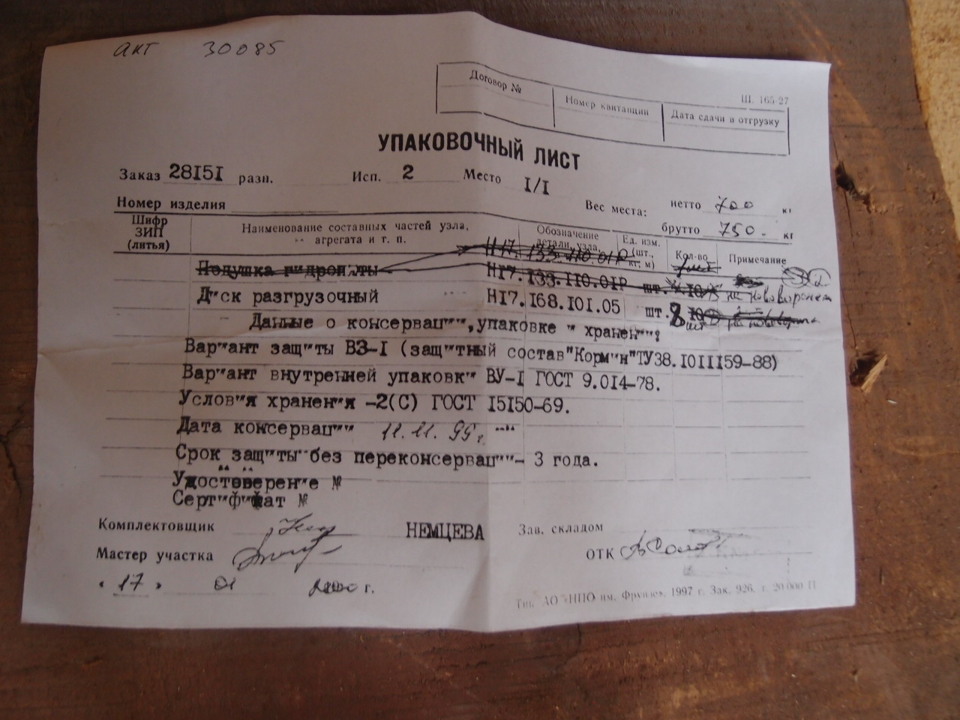 акт 30085
Договор № Номер квитанции Дата сдачи в отгрузку
Ш. 165-27
УПАКОВОЧНЫЙ ЛИСТ
Заказ 28151 разн. Исп. 2 Место I/I
Номер изделия Вес места: нетто 700 кг
брутто 750. кг
Шифр ЗИП (литья) Наименование составных частей узла, агрегата и т. п. Обозначение детали, узла Ед. изм. (шт., кг, м) Кол-во Примечание
Н17.133.110.01Р
Подушка гидропяты Н17.133.110.01Р шт.
Диск разгрузочный Н17.168.101.05 шт. 8
Данные о консервации, упаковке и хранении:
Вариант защиты ВЗ-I (защитный состав "Кормин" ТУ38.1011159-88)
Вариант внутренней упаковки ВУ-I ГОСТ 9.014-78.
Условия хранения -2(С) ГОСТ 15150-69.
Дата консервации 11.11.99г.
Срок защиты без переконсервации - 3 года.
Удостоверение №
Сертификат №
Комплектовщик НЕМЦЕВА Зав. складом
Мастер участка ОТК
" 17 " 01 2000 г.
Тип. АО «НПО им. Фрунзе». 1997 г. Зак. 926. т. 20 000 П